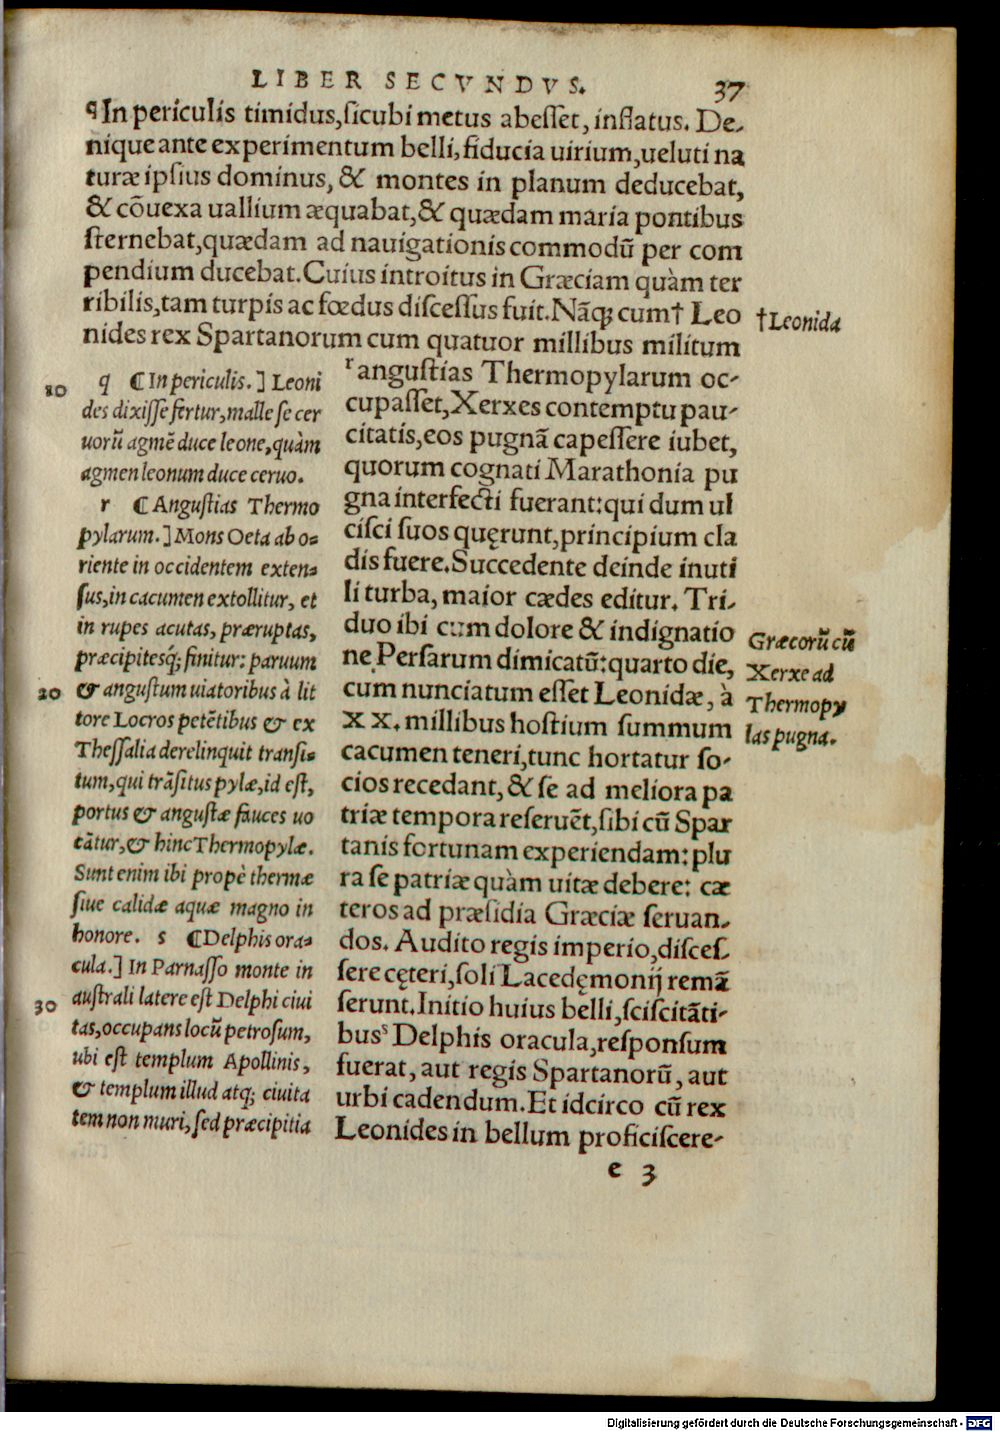 LIBER SECVNDVS. 37
q In periculis timidus, sicubi metus abesset, inflatus. De-
nique ante experimentum belli, fiducia uirium, ueluti na
turæ ipsius dominus, & montes in planum deducebat,
& cõuexa uallium æquabat, & quædam maria pontibus
sternebat, quædam ad nauigationis commodũ per com
pendium ducebat. Cuius introitus in Græciam quàm ter
ribilis, tam turpis ac fœdus discessus fuit. Nãq; cum† Leo
nides rex Spartanorum cum quatuor millibus militum
r angustias Thermopylarum oc-
cupasset, Xerxes contemptu pau-
citatis, eos pugnã capessere iubet,
quorum cognati Marathonia pu
gna interfecti fuerant: qui dum ul
cisci suos quęrunt, principium cla
dis fuere. Succedente deinde inuti
li turba, maior cædes editur. Tri-
duo ibi cum dolore & indignatio
ne Persarum dimicatũ: quarto die,
cum nunciatum esset Leonidæ, à
XX. millibus hostium summum
cacumen teneri, tunc hortatur so-
cios recedant, & se ad meliora pa
triæ tempora reseruẽt, sibi cũ Spar
tanis fortunam experiendam: plu
ra se patriæ quàm uitæ debere: cæ
teros ad præsidia Græciæ seruan-
dos. Audito regis imperio, disces-
sere cęteri, soli Lacedęmonij remã
serunt. Initio huius belli, sciscitãti-
bus s Delphis oracula, responsum
fuerat, aut regis Spartanorũ, aut
urbi cadendum. Et idcirco cũ rex
Leonides in bellum proficiscere-
e 3
† Leonida
Græcorũ cũ
Xerxe ad
Thermopy
las pugna.
10
q ⸿ In periculis.] Leoni
des dixisse fertur, malle se cer
uorũ agmẽ duce leone, quàm
agmen leonum duce ceruo.
r ⸿ Angustias Thermo
pylarum.] Mons Oeta ab o=
riente in occidentem exten=
sus, in cacumen extollitur, et
in rupes acutas, præruptas,
præcipitesq; finitur: paruum
20
& angustum uiatoribus à lit
tore Locros petẽtibus & ex
Thessalia derelinquit transi=
tum, qui trãsitus pylæ, id est,
portus & angustæ fauces uo
cãtur, & hinc Thermopylæ.
Sunt enim ibi propè thermæ
siue calidæ aquæ magno in
honore. s ⸿ Delphis ora=
cula.] In Parnasso monte in
30
australi latere est Delphi ciui
tas, occupans locũ petrosum,
ubi est templum Apollinis,
& templum illud atq; ciuita
tem non muri, sed præcipitia
Digitalisierung gefördert durch die Deutsche Forschungsgemeinschaft - DFG